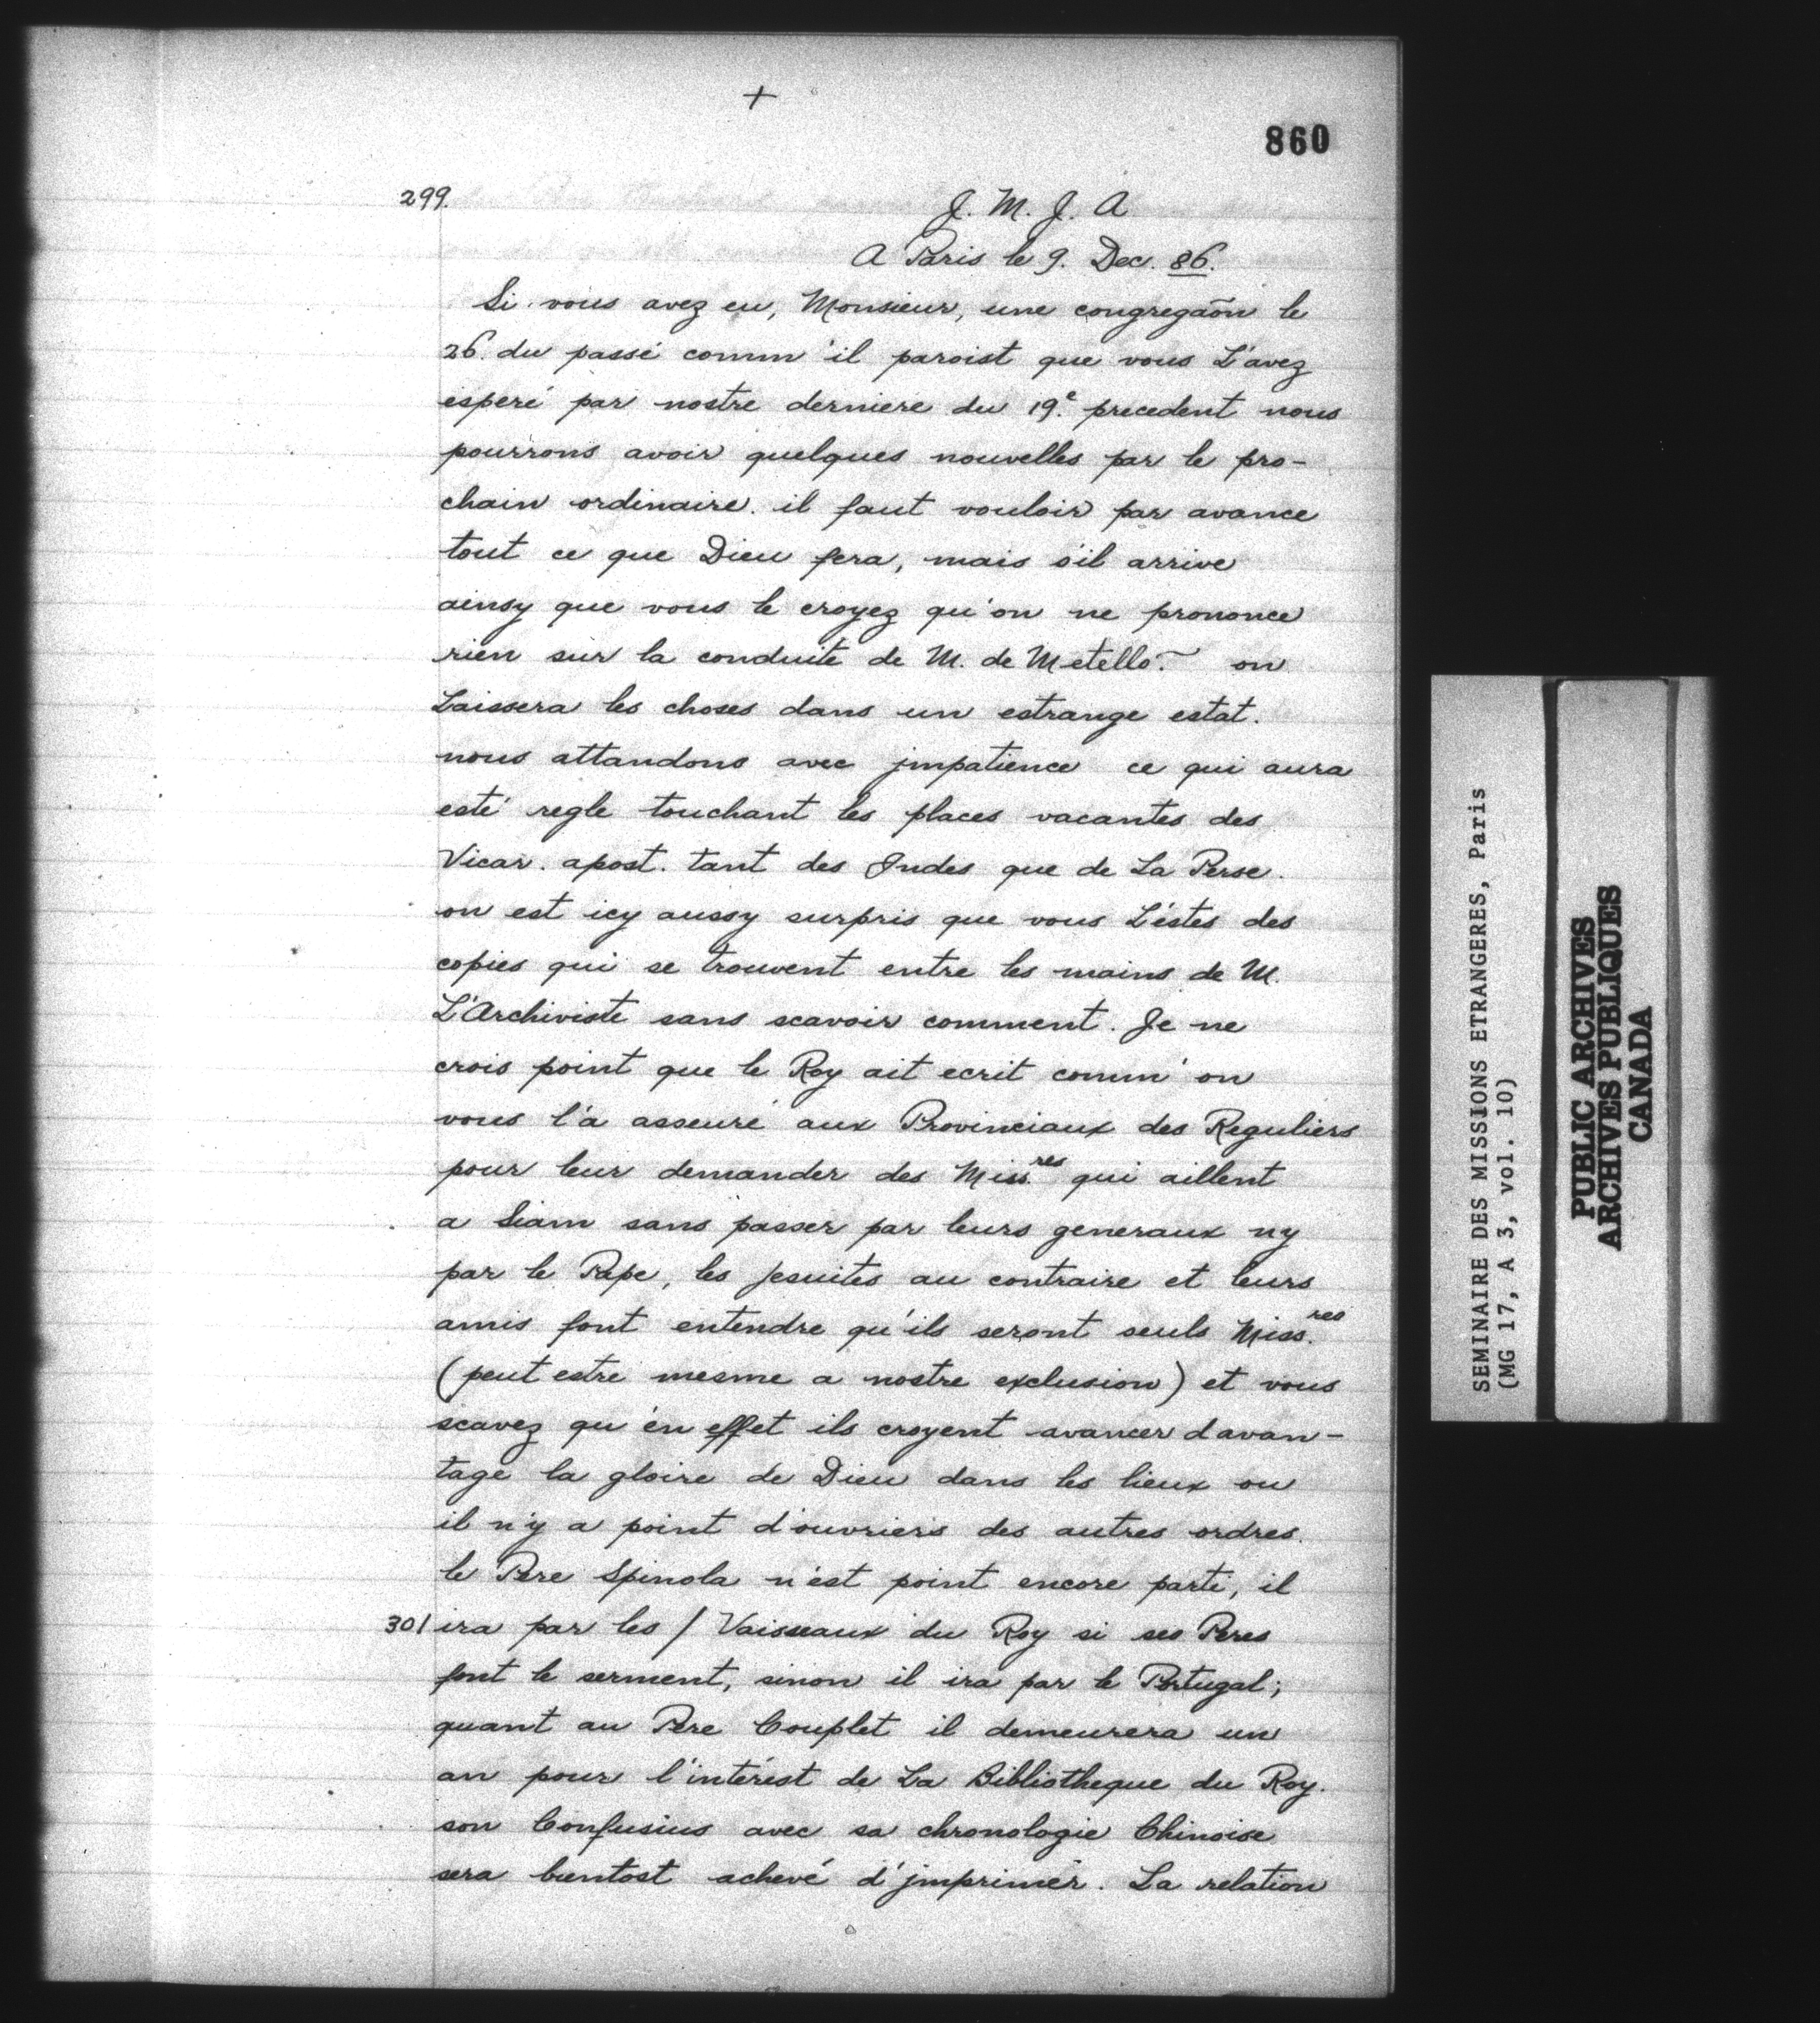 +
860
299.
J. M. J. A
A Paris le 9. Dec. 86.
Si vous avez eu, Monsieur, une congregaõn le
26. du passé comm'il paroist que vous L'avez
esperé par nostre derniere du 19.e precedent nous
pourrons avoir quelques nouvelles par le pro-
chain ordinaire. il faut vouloir par avance
tout ce que Dieu fera, mais s'il arrive
ainsy que vous le croyez qu'on ne prononce
rien sur la conduite de M. de Metello. on
Laissera les choses dans un estrange estat.
nous attandons avec jmpatience ce qui aura
esté regle touchant les places vacantes des
Vicar. apost. tant des Indes que de La Perse.
on est icy aussy surpris que vous L'estes des
copies qui se trouvent entre les mains de M.
L'Archiviste sans scavoir comment. Je ne
crois point que le Roy ait ecrit comm'on
vous l'a asseuré aux Provinciaux des Reguliers
pour leur demander des Miss.res qui aillent
a Siam sans passer par leurs generaux ny
par le Pape, les jesuites au contraire et leurs
amis font entendre qu'ils seront seuls Miss.res
(peut estre mesme a nostre exclusion) et vous
scavez qu'en effet ils croyent avancer d avan-
tage la gloire de Dieu dans les lieux ou
il n'y a point d'ouvriers des autres ordres.
le Pere Spinola n'est point encore parti, il
301 ira par les / Vaisseaux du Roy si ses Peres
font le serment, sinon il ira par le Portugal;
quant au Pere Couplet il demeurera un
an pour l'intérest de La Bibliotheque du Roy.
son Confusius avec sa chronologie Chinoise
sera bientost achevé d'jmprimer. La relation
SEMINAIRE DES MISSIONS ETRANGERES, Paris
(MG 17, A 3, vol. 10)
PUBLIC ARCHIVES
ARCHIVES PUBLIQUES
CANADA